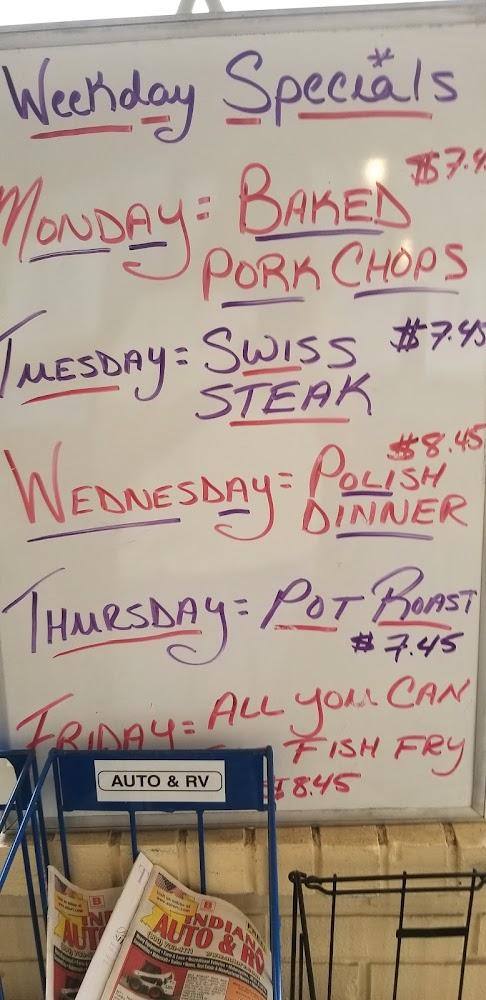 Weekday Specials
$7.4
MONDAY = BAKED
PORK CHOPS
TUESDAY = SWISS $7.45
STEAK
$8.45
WEDNESDAY = POLISH
DINNER
THURSDAY = POT ROAST
$7.45
FRIDAY = ALL YOU CAN
FISH FRY
$8.45
AUTO & RV
INDIANA
AUTO & RV
IN
AUT